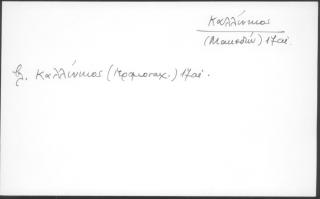 Καλλίνικος
(Μακεδών) 17αι.
βλ. Καλλίνικος (Ιερομοναχ.) 17αι.